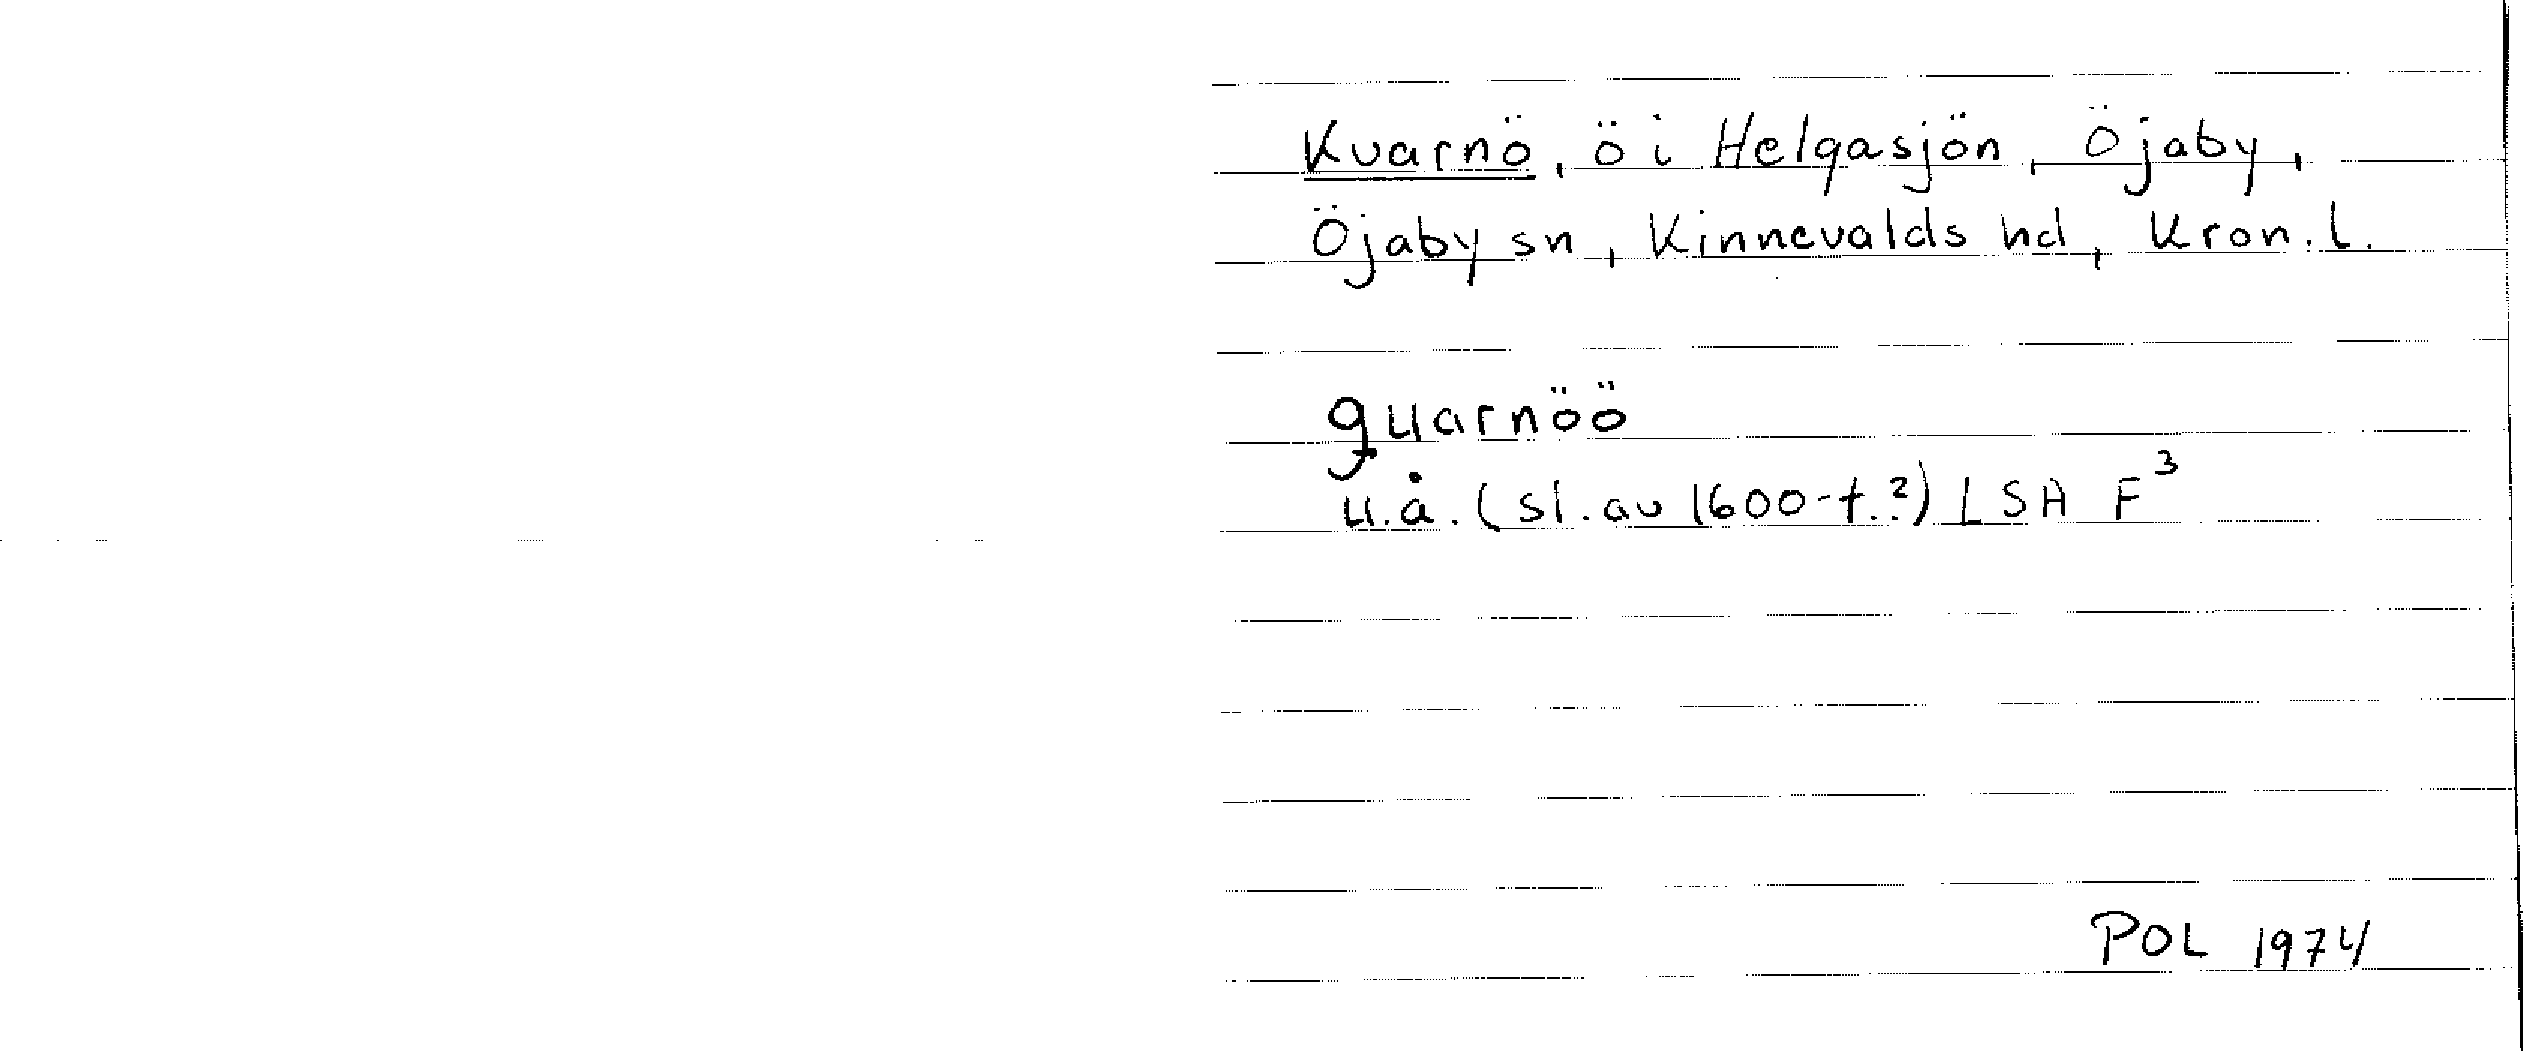 Kvarnö, ö i Helgasjön, Öjaby,
Öjaby sn, Kinnevalds hd, Kron. l.
quarnöö
u.å. (sl. av 1600-t.?) LSA F³
POL 1974